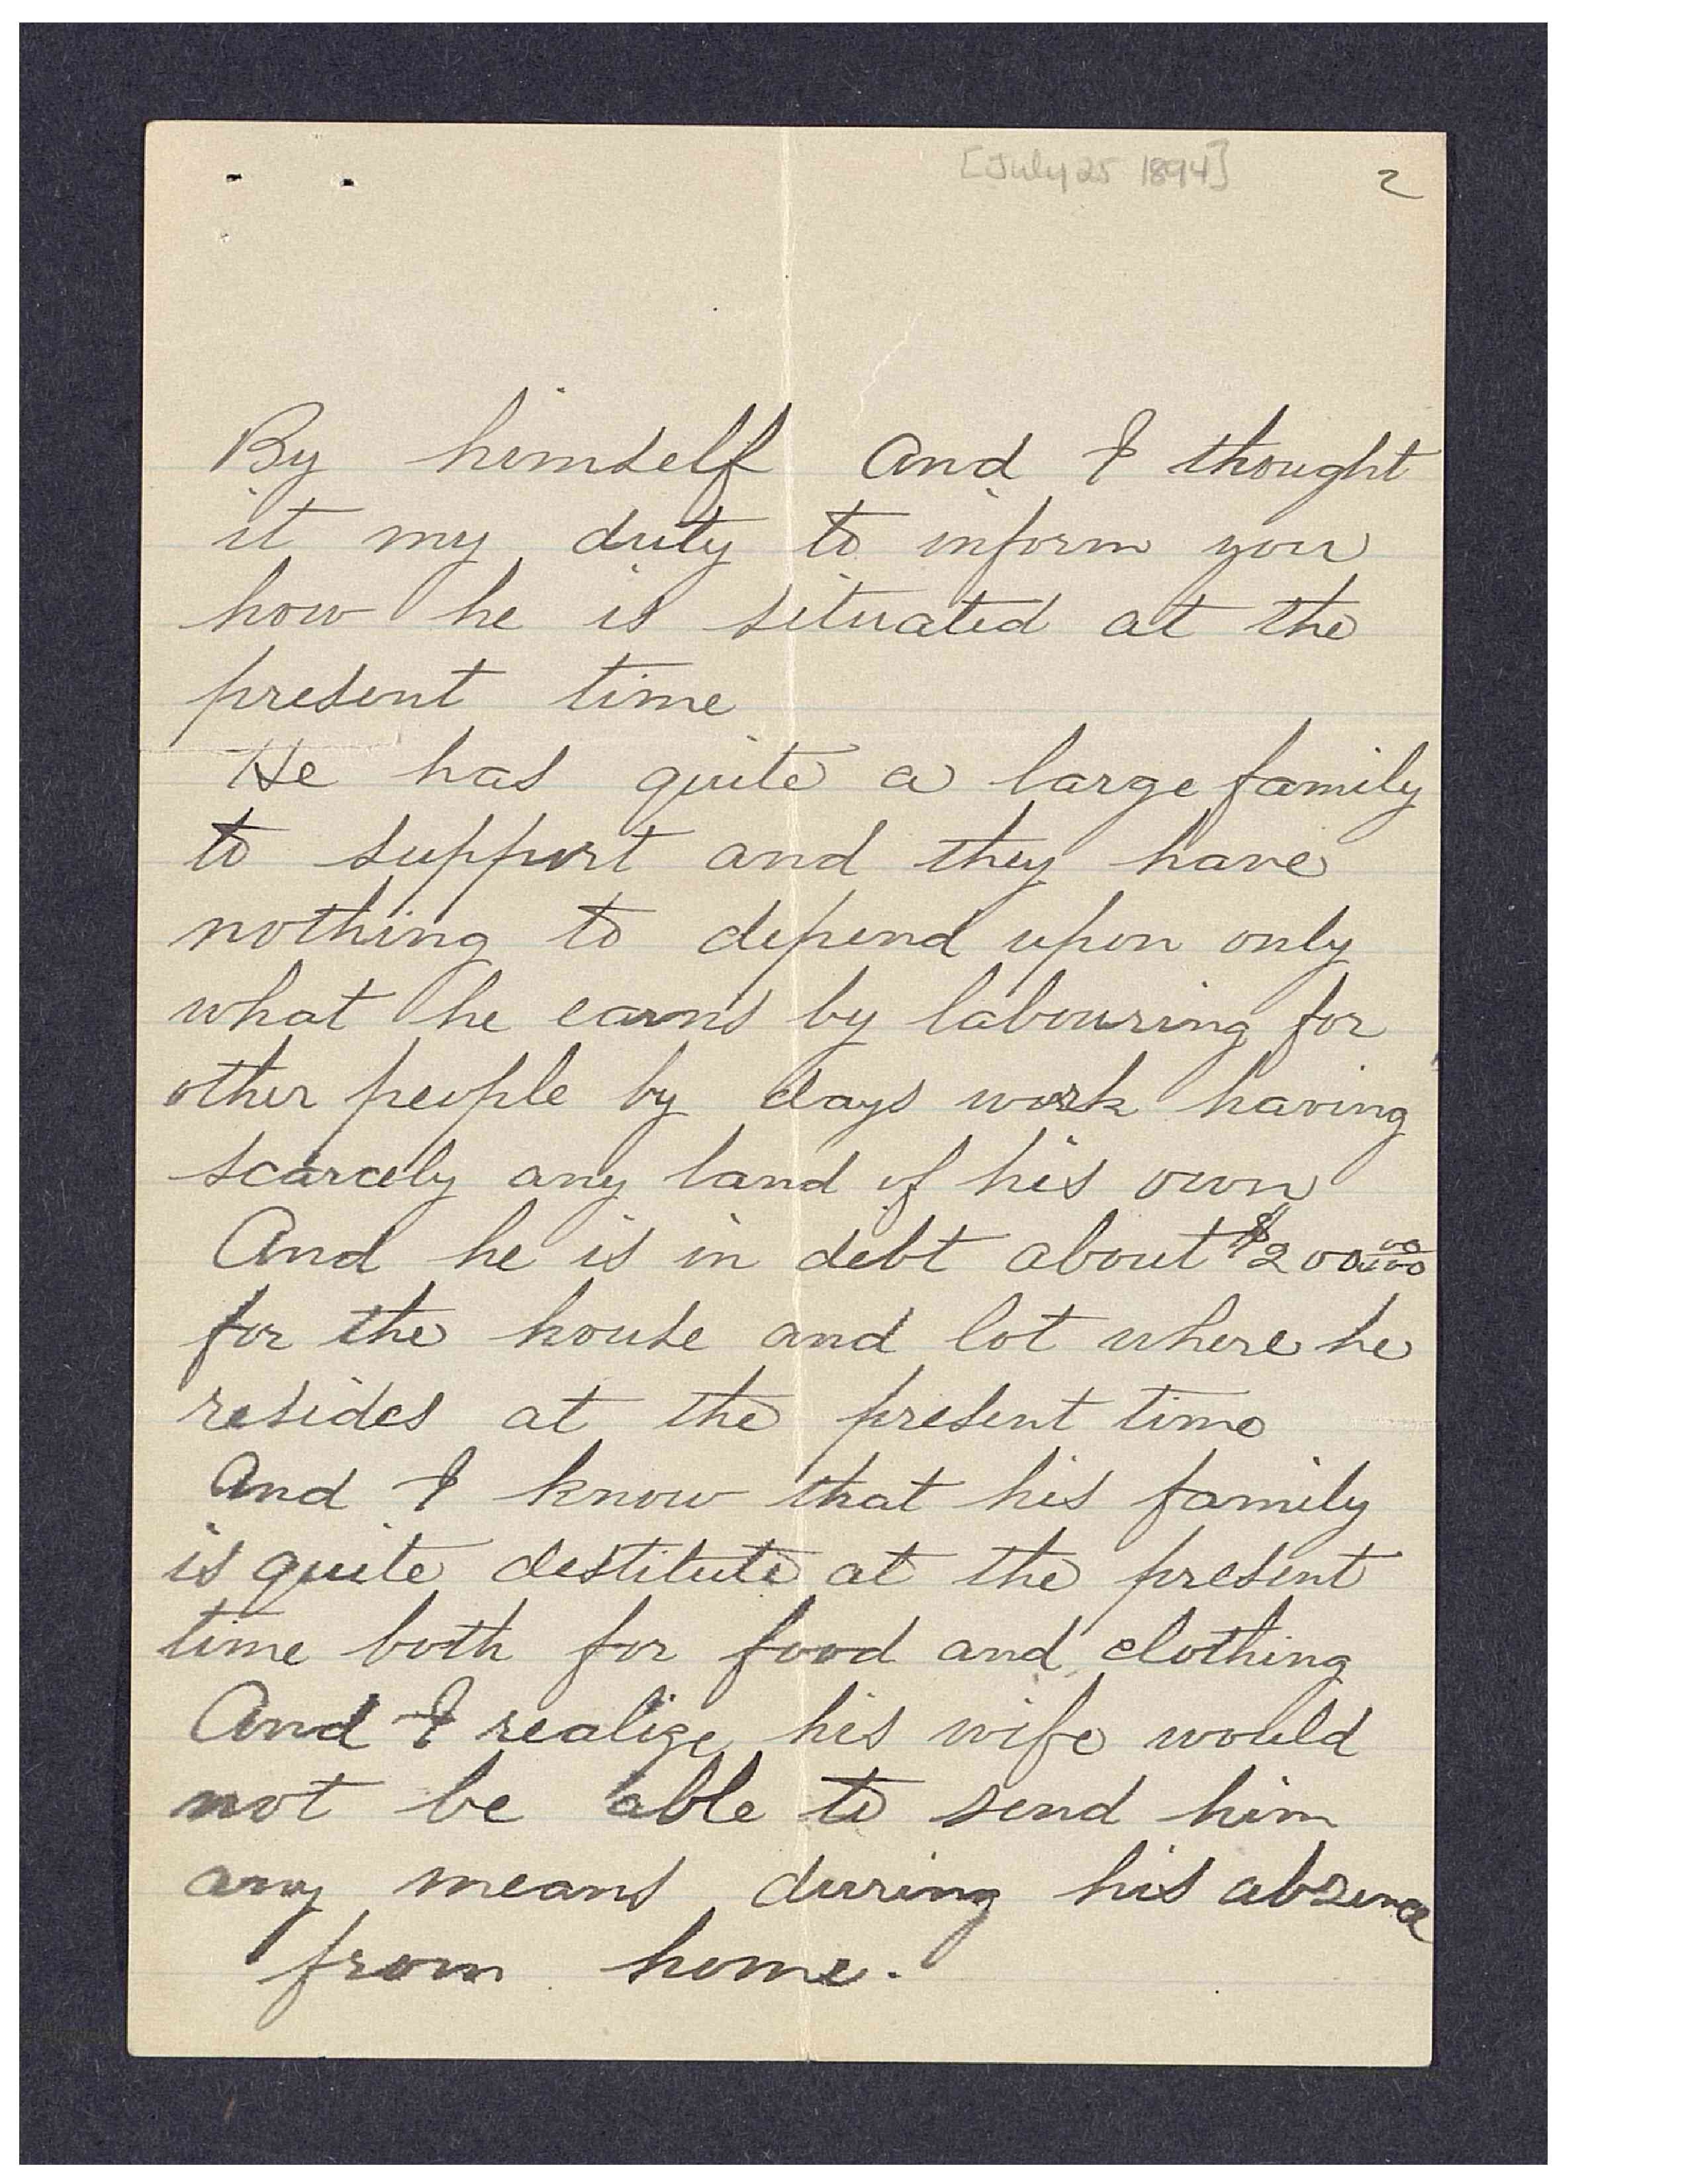 [July 25 1894] 2
By himself And I thought
it my duty to inform you
how he is situated at the
present time
He has quite a large family
to support and they have
nothing to depend upon only
what he earns by labouring for
other people by days work having
scarcely any land of his own
And he is in debt about $200 00/100
for the house and lot where he
resides at the present time
And I know that his family
is quite destitute at the present
time both for food and clothing
And I realize his wife would
not be able to send him
any means during his absence
from home.